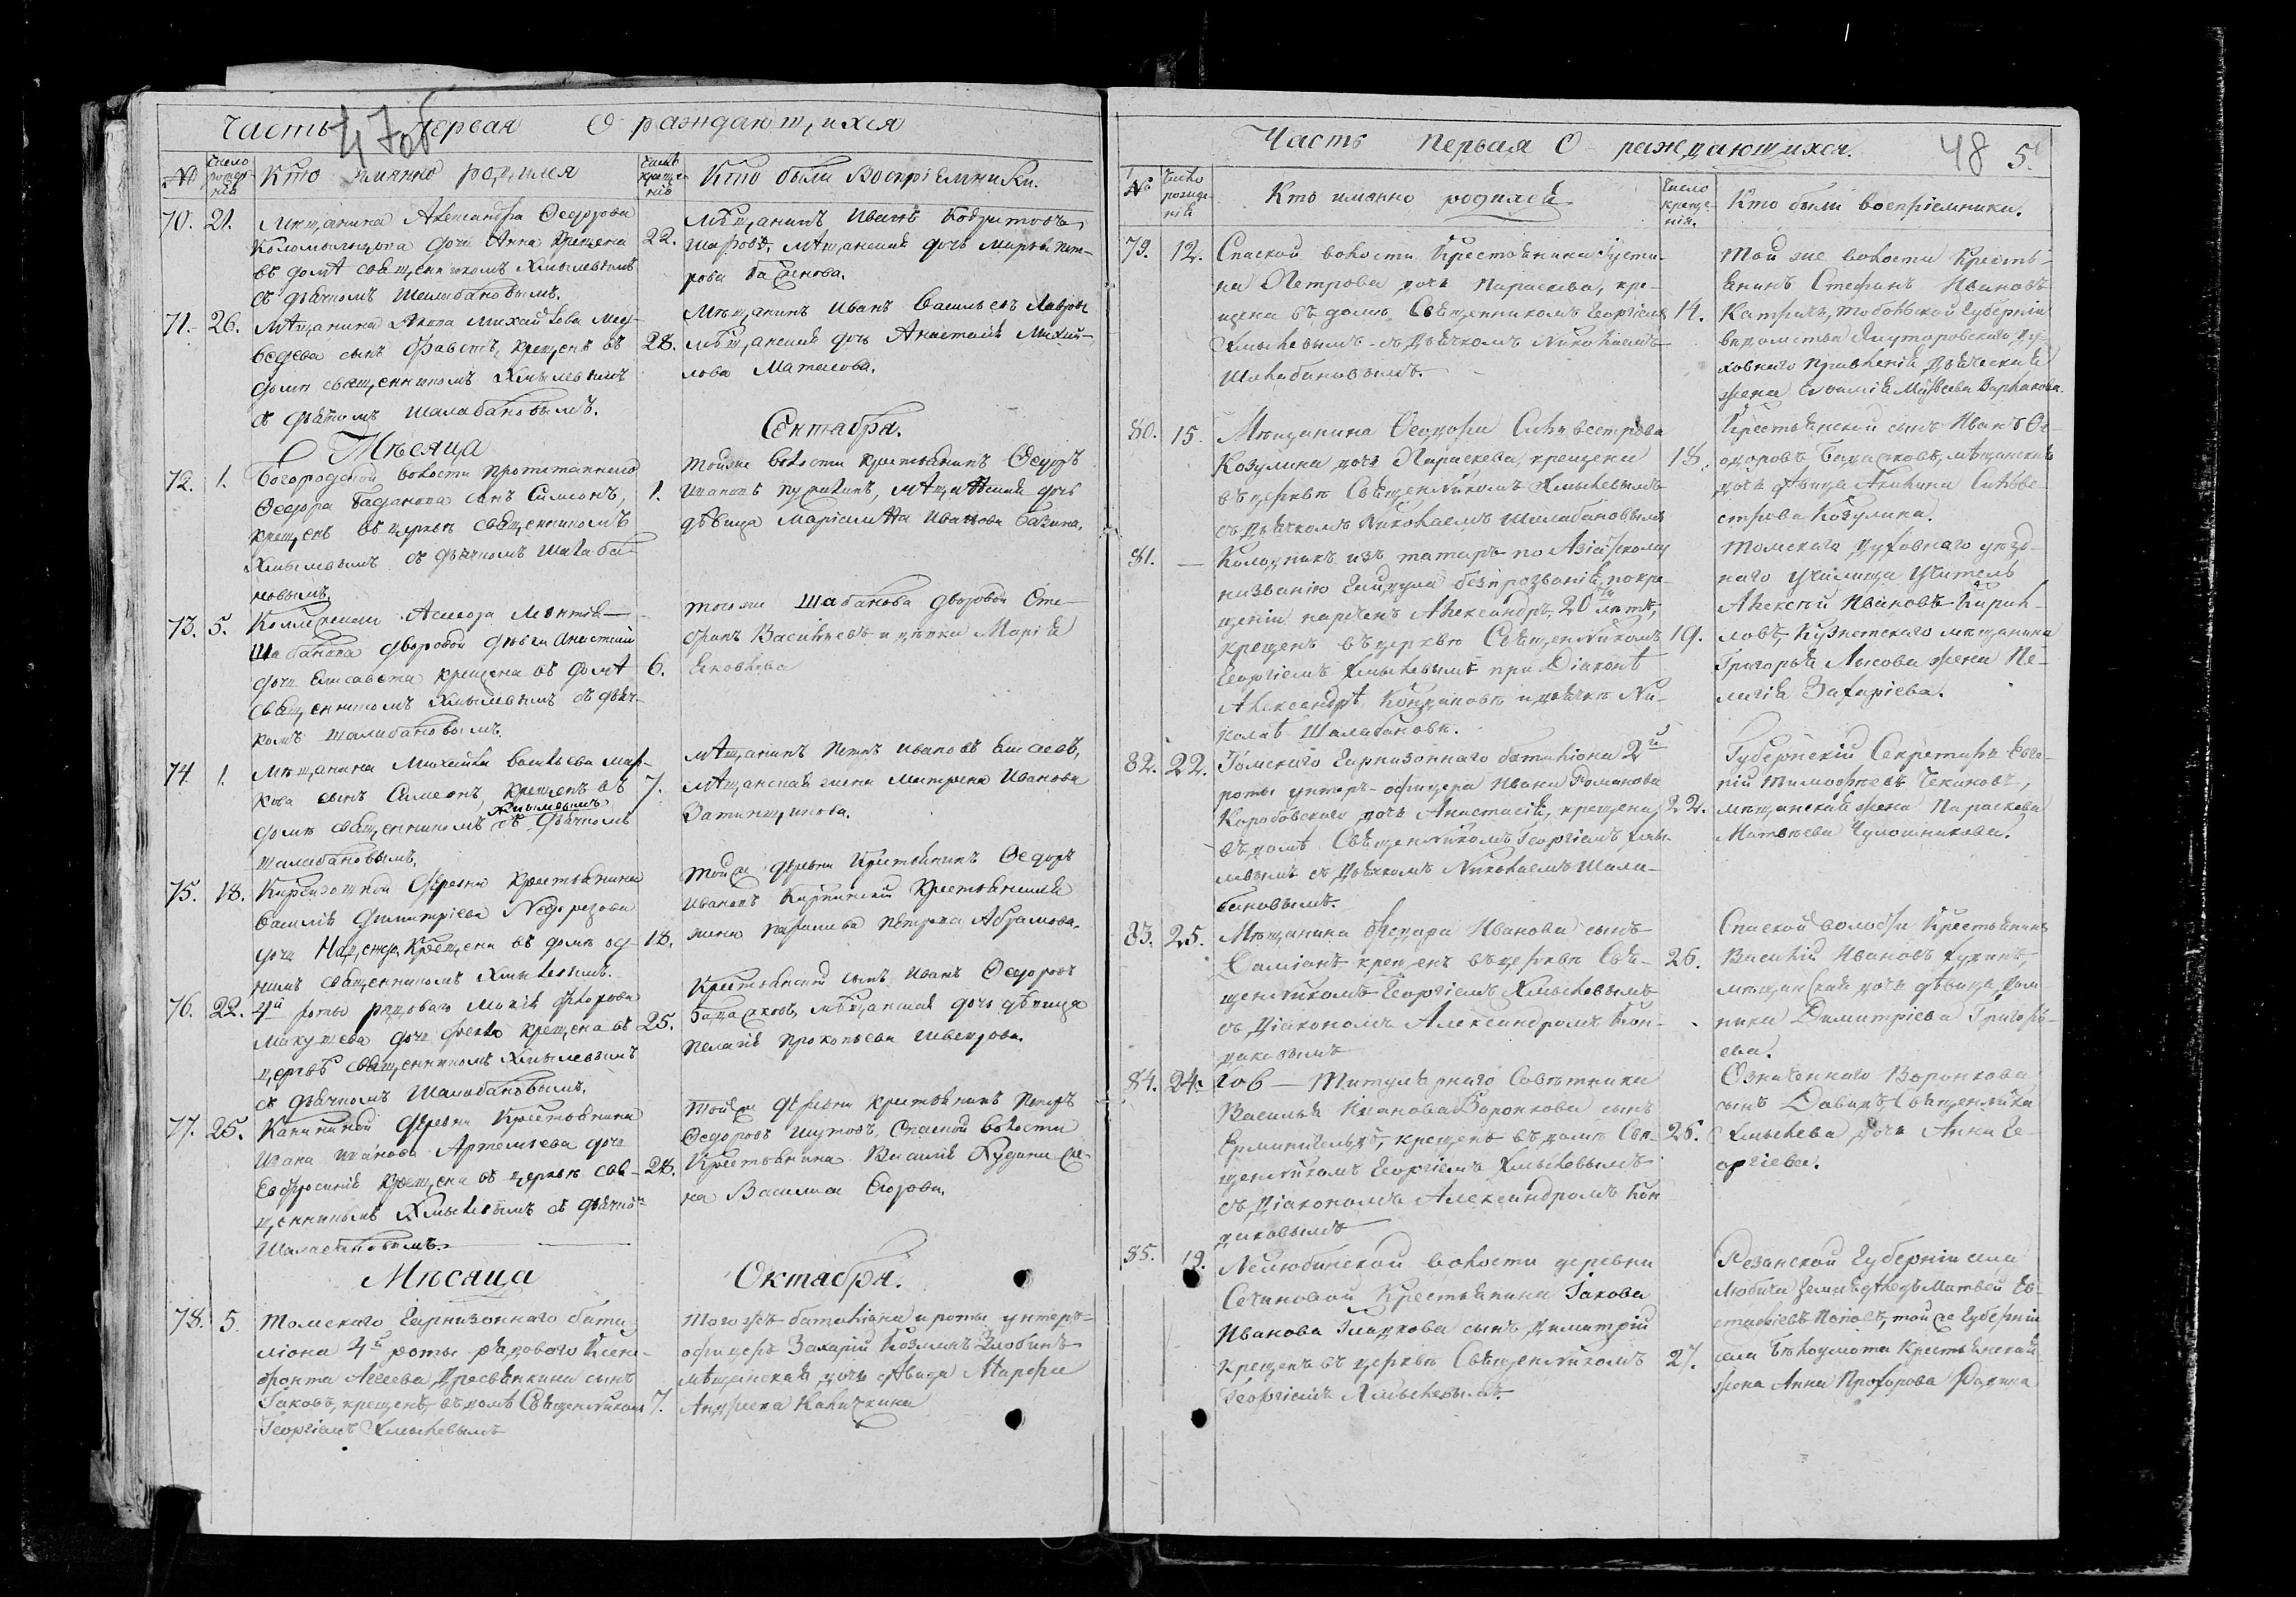 Часть первая О раждающихся
47об
№ Число рожденія Кто имянно родился Число крещенія Кто были Воспріемники.
70. 21. Мещанина Александра Ѳедорова
Коломыльцова дочь Анна крещена
въ домѣ священникомъ Хмылевымъ
съ дьячкомъ Шалабановымъ.
22. Мѣщанинъ Иванъ
Шаровъ, мѣщанская дочь Марѳа Пет-
рова
71. 26. Мѣщанина Якова Михайлова Мед-
ведева сынъ Фавстъ, крещенъ въ
доме священникомъ Хмылевымъ
съ дьячкомъ Шалабановымъ.
28. Мѣщанинъ Иванъ Васильевъ
мѣщанская дочь Анастасія Михай-
лова
Мѣсяца Сентября.
72. 1. Богородской волости
Ѳедора Баданова сынъ Симеонъ,
крещенъ въ церкве священникомъ
Хмылевымъ съ дьячкомъ Шалаба-
новымъ.
1. Той же волости крестьянинъ Ѳедоръ
Ивановъ мѣщанская дочь
дѣвица Маріамна Иванова
73. 5.
Шабанова дворовой девки Анастасіи
дочь Елисавета крещена въ домѣ
священникомъ Хмылевымъ съ дьяч-
комъ Шалабановымъ.
6. того же Шабанова дворовой Сте-
фанъ Васильевъ и девка Марія
Яковлева
74 1. Мещанина Михайла Васильева Мар-
кова сынъ Симеонъ, крещенъ въ
доме священникомъ Хмылевымъ съ дьячкомъ
Шалабановымъ.
7. мѣщанинъ Петръ Ивановъ
мѣщанская жена Матрена Иванова
75. 18. деревни крестьянина
Василія Димитріева Недорезова
дочь Надежда, крещена въ доме од-
нимъ священникомъ Хмылевымъ.
18. Той же деревни крестьянинъ Ѳедоръ
Ивановъ крестьянская
жена Параскева Петрова Абрамова.
76. 22. 4й роты рядоваго
Макушева дочь Ѳекла крещена въ
церквѣ священникомъ Хмылевымъ
съ дьячкомъ Шалабановымъ.
25. Крестьянской сынъ Иванъ Ѳедоровъ
мѣщанская дочь дѣвица
Пелагія Прокопьева Швецова.
77. 25. деревни Крестьянина
Ивана Иванова Артемьева дочь
Евфросинія крещена въ церкве свя-
щенникомъ Хмылевымъ съ дьячко
Шалабановымъ.
28. Той же деревни крестьянинъ Петръ
Ѳедоровъ Шутовъ, Спаской волости
Крестьянина Василія Худина же-
на Василиса Егорова.
Мѣсяца Октября.
78. 5 Томскаго Гарнизоннаго бата-
ліона 4й роты рядоваго Ксено-
фонта Агеева Дресвянкина сынъ
Іаковъ, крещенъ въ домѣ Священникомъ
Георгіемъ Хмылевымъ
7. Того жъ баталіона и роты унтеръ-
офицеръ Захарій Козминъ Злобинъ
мѣщанская дочь дѣвица Марѳа
Андреева Каличкина
Часть первая О раждающихся.
48 5.
№ Число рожденія Кто имянно родился Число крещенія. Кто были воспріемники.
79. 12. Спаской волости Крестьянина Густи-
на Петрова дочь Параскева, кре-
щена въ доме Священникомъ Георгіемъ
Хмылевымъ съ Дьячкомъ Николаемъ
Шалабановымъ.
14. Той же волости Кресть-
янинъ Стефанъ Ивановъ
Тобольской Губерніи
ведомства Ялуторовскаго Ду-
ховнаго Правленія Дьяческая
жена Матвеева Варлакова.
80. 15. Мѣщанина Ѳедора Сильвестрова
Козулина дочь Параскева, крещена
въ церкве Священникомъ Хмылевымъ
съ Дьячкомъ Николаемъ Шалабановымъ
18. Крестьянской сынъ Иванъ Ѳе-
доровъ мѣщанская
дочь дѣвица Акилина Сильве-
строва Козулина.
81. — Колодникъ изъ татаръ по Азіатскому
названію безъ прозванія, по кре-
щеніи нареченъ Александръ, 20ти лѣтъ,
крещенъ въ церкве Священникомъ
Георгіемъ Хмылевымъ при Діаконѣ
Александрѣ Кондаковѣ и дьячкѣ Ни-
колаѣ Шалабановѣ.
19. Томскаго Духовнаго уезд-
наго Училища Учитель
Алексѣй Ивановъ Кирил-
ловъ, Кузнетскаго мещанина
Григорья Лысова жена Пе-
лагія Захаріева.
82. 22. Томскаго Гарнизоннаго баталіона 2й
роты унтеръ-офицера Ивана Романова
Коробовскаго дочь Анастасія, крещена
въ домѣ Священникомъ Георгіемъ Хмы-
левымъ съ Дьячкомъ Николаемъ Шала-
бановымъ.
22. Губернскій Секретарь Евге-
ній Тимофеевъ Чекановъ,
мещанская жена Параскева
Матвеева Чулошникова.
83. 25. Мѣщанина Ѳедора Иванова сынъ
Даміанъ крещенъ въ церкве Свя-
щенникомъ Георгіемъ Хмылевымъ
съ Діакономъ Александромъ Кон-
даковымъ
26. Спаской волости Крестьянинъ
Василій Ивановъ Худинъ,
мещанская дочь дѣвица Дом-
ника Димитріева Григорь-
ева.
84. 24. Титулярнаго Советника
Василья Иванова Воронкова сынъ
крещенъ въ доме Свя-
щенникомъ Георгіемъ Хмылевымъ
съ Діакономъ Александромъ Кон
даковымъ
26. Означеннаго Воронкова
сынъ Давидъ, Священника
Хмылева дочь Анна Ге-
оргіева.
85. 19. Нелюбинской волости деревни
Сечиновой Крестьянина Іакова
Иванова Гладкова сынъ Димитрій
крещенъ въ церкве Священникомъ
Георгіемъ Хмылевымъ
27. Резанской Губерніи села
Любичи Матвей Ев-
стафіевъ Поповъ, той же Губерніи
села Крестьянская
жена Анна Прохорова